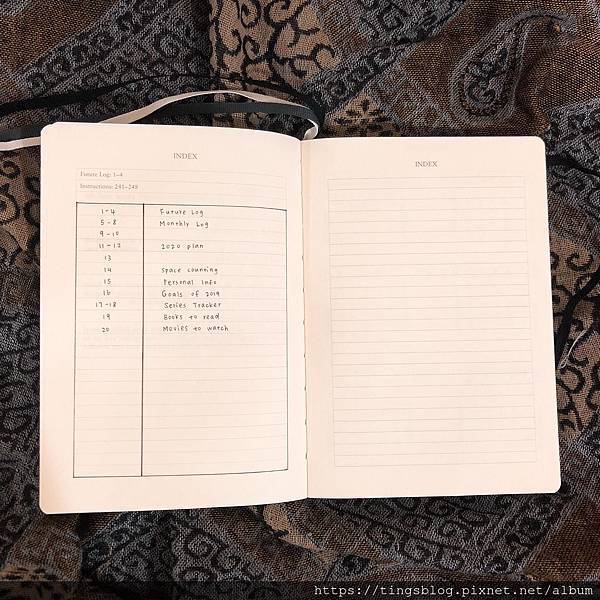 INDEX
Future Log: 1–4
Instructions: 241–248
1-4 Future Log
5-8 Monthly Log
9-10
11-12 2020 plan
13
14 space counting
15 Personal Info
16 Goals of 2019
17-18 Series Tracker
19 Books to read
20 Movies to watch
INDEX
https://tingsblog.pixnet.net/album